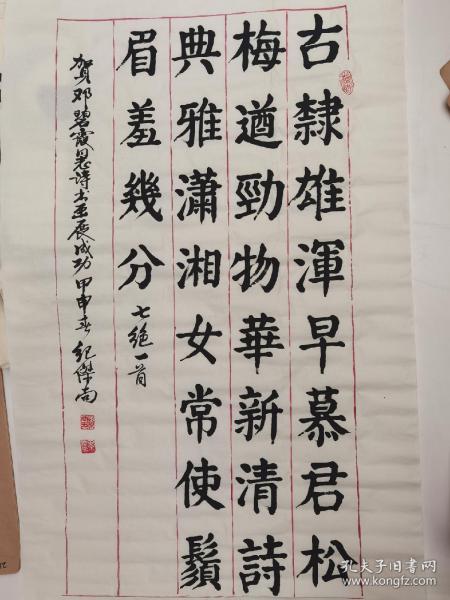 古隸雄渾早慕君松
梅遒勁物華新清詩
典雅瀟湘女常使鬚
眉羞幾分七絶一首
賀邓碧霞思诗书画展成功甲申春纪傑尚
孔夫子旧书网
www.kongfz.com